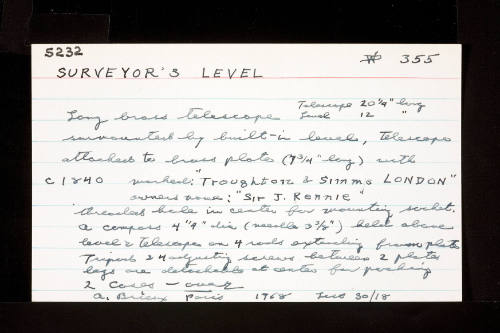 5232
W 355
SURVEYOR'S LEVEL
Long brass telescope Telescope 20 1/4" long
Level 12 "
surmounted by built-in level, telescope
attached to brass plate (7 3/4" long) with
c 1840 marked: "Troughton & Simms LONDON"
owners name: "Sir J. Rennie"
threaded hole in center for mounting socket.
A compass 4 "4" dia (needle 3 3/8") held above
level & telescope on 4 rods extending from plate
Tripod 24 adjusting screws between 2 plates
legs are detachable at center for packing
2 Cases - over
A. Brieux Paris 1968 30/18